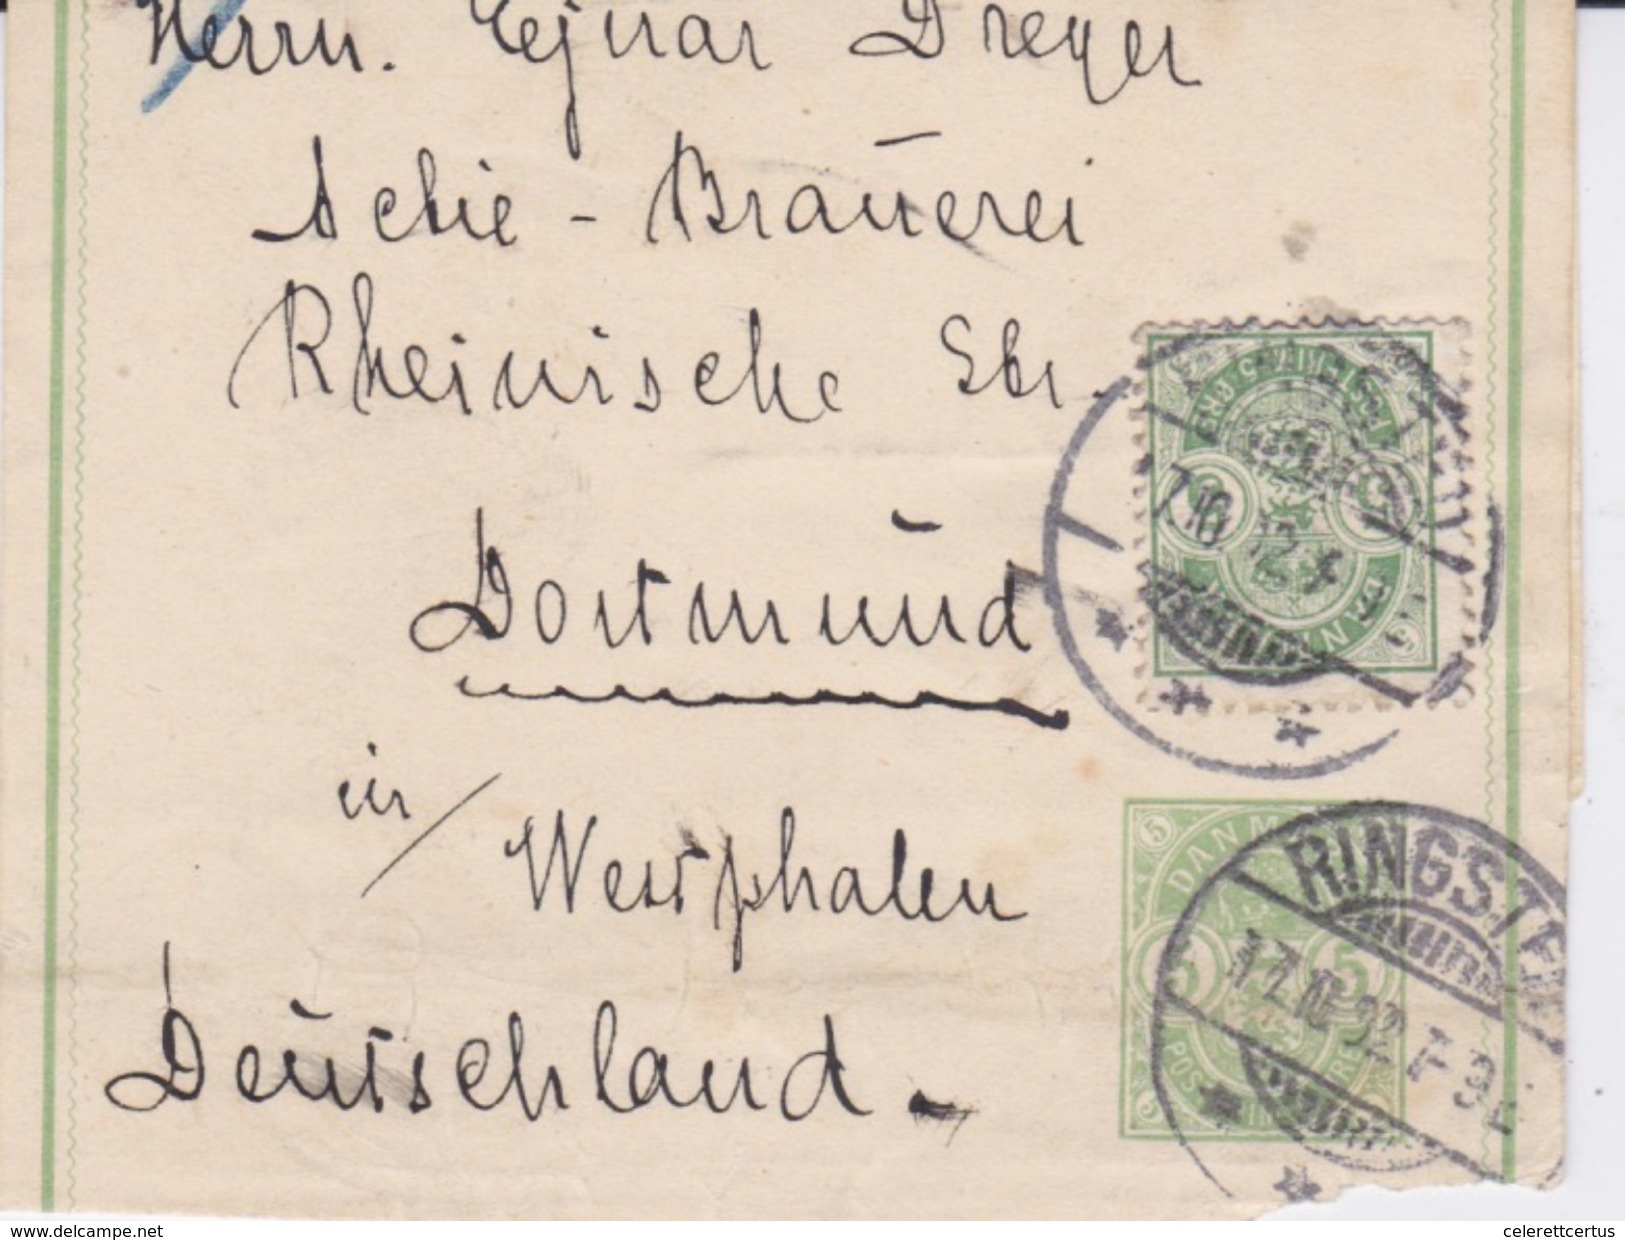 Herrn. Ejnar Dreyer
Actie - Brauerei
Rheinische Str.
Dortmund
in Westphalen
Deutschland
DANMARK
5 5
RINGSTED
17.10.92
www.delcampe.net
celerettcertus